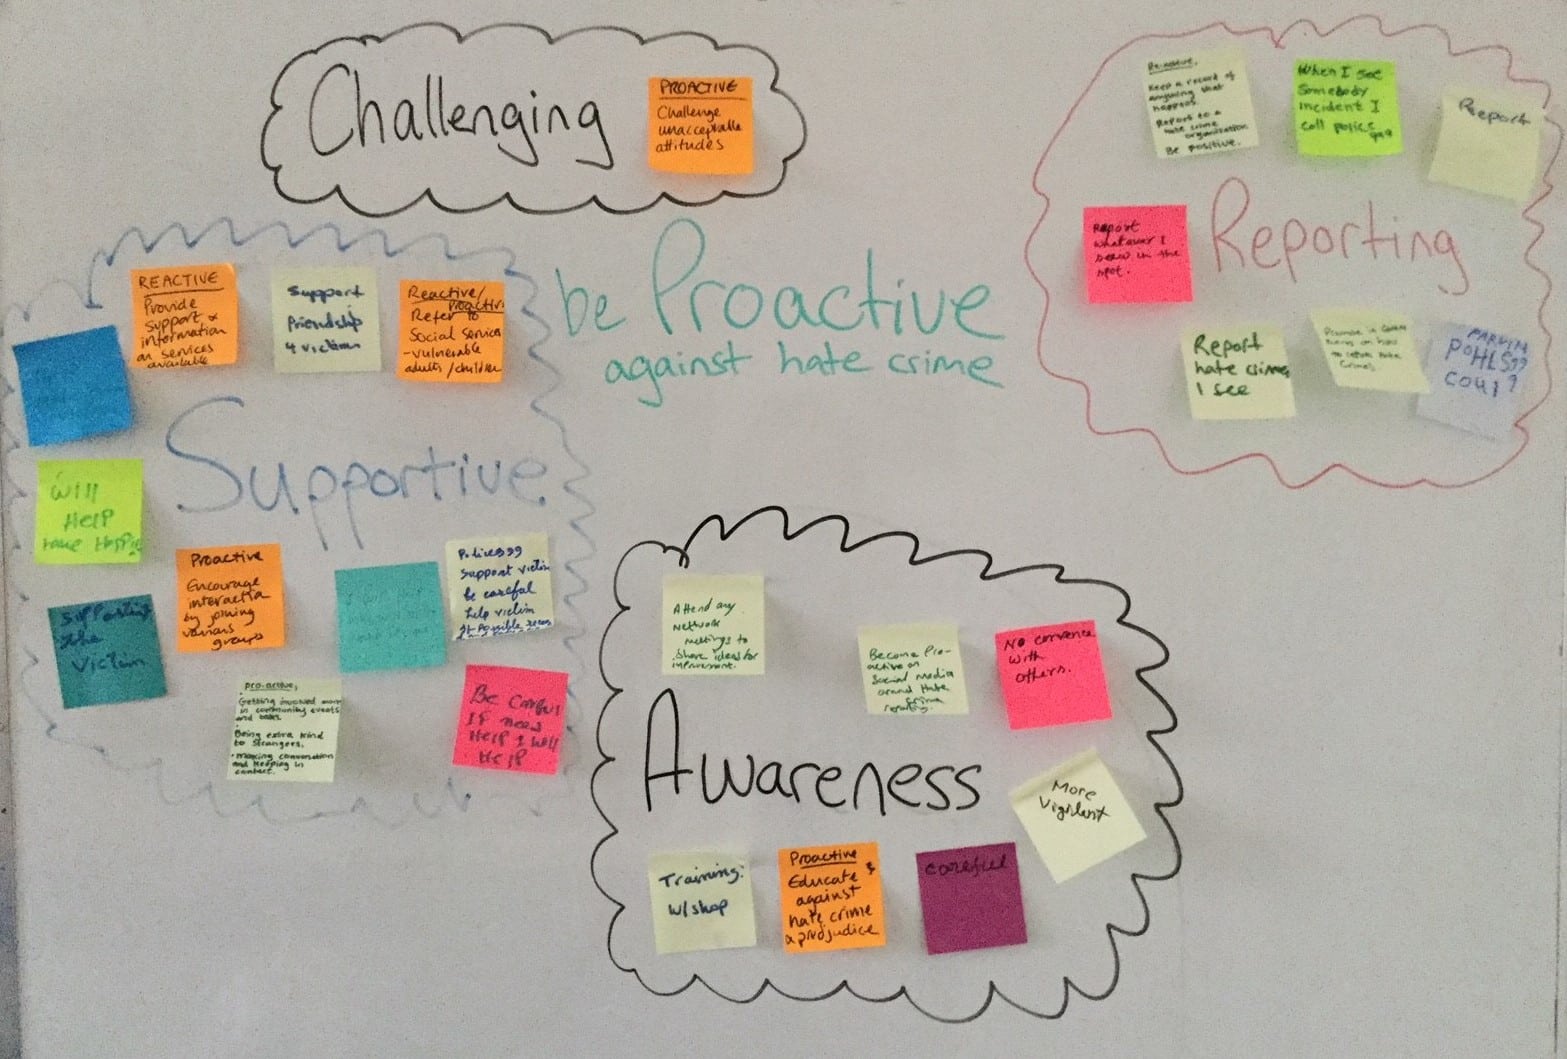 Challenging
PROACTIVE
Challenge
unacceptable
attitudes
be Proactive
against hate crime
Reporting
Re-active,
Keep a record of
anything that
happens.
Report to a
hate crime
organisation
Be positive.
When I see
Somebody
incident I
call police
Report
Report
whatever I
in the
spot.
Report
hate crime
I see
on how
hate
Crimes
Supportive
REACTIVE
Provide
support &
information
on services
available
Support
Friendship
4 victim
Reactive/
Proactive
Refer to
Social Services
- vulnerable
adults/children
Will
HELP
Supporting
the
Victim
Proactive
Encourage
interaction
by joining
various
groups
Police 999
Support victim
be careful
help victim
pro-active,
Getting involved more
in community events
and
Being extra kind
to strangers.
- Making conversation
and keeping in
contact.
BE Careful
IF need
HELP I will
HELP
Awareness
Attend any
Network
meetings to
Share ideas for
improvement.
Become Pro-
active on
Social media
around Hate
Crime
reporting.
No
with
others.
More
Vigilant
Training:
w/shop
Proactive
Educate
against
hate crime
& prejudice
careful